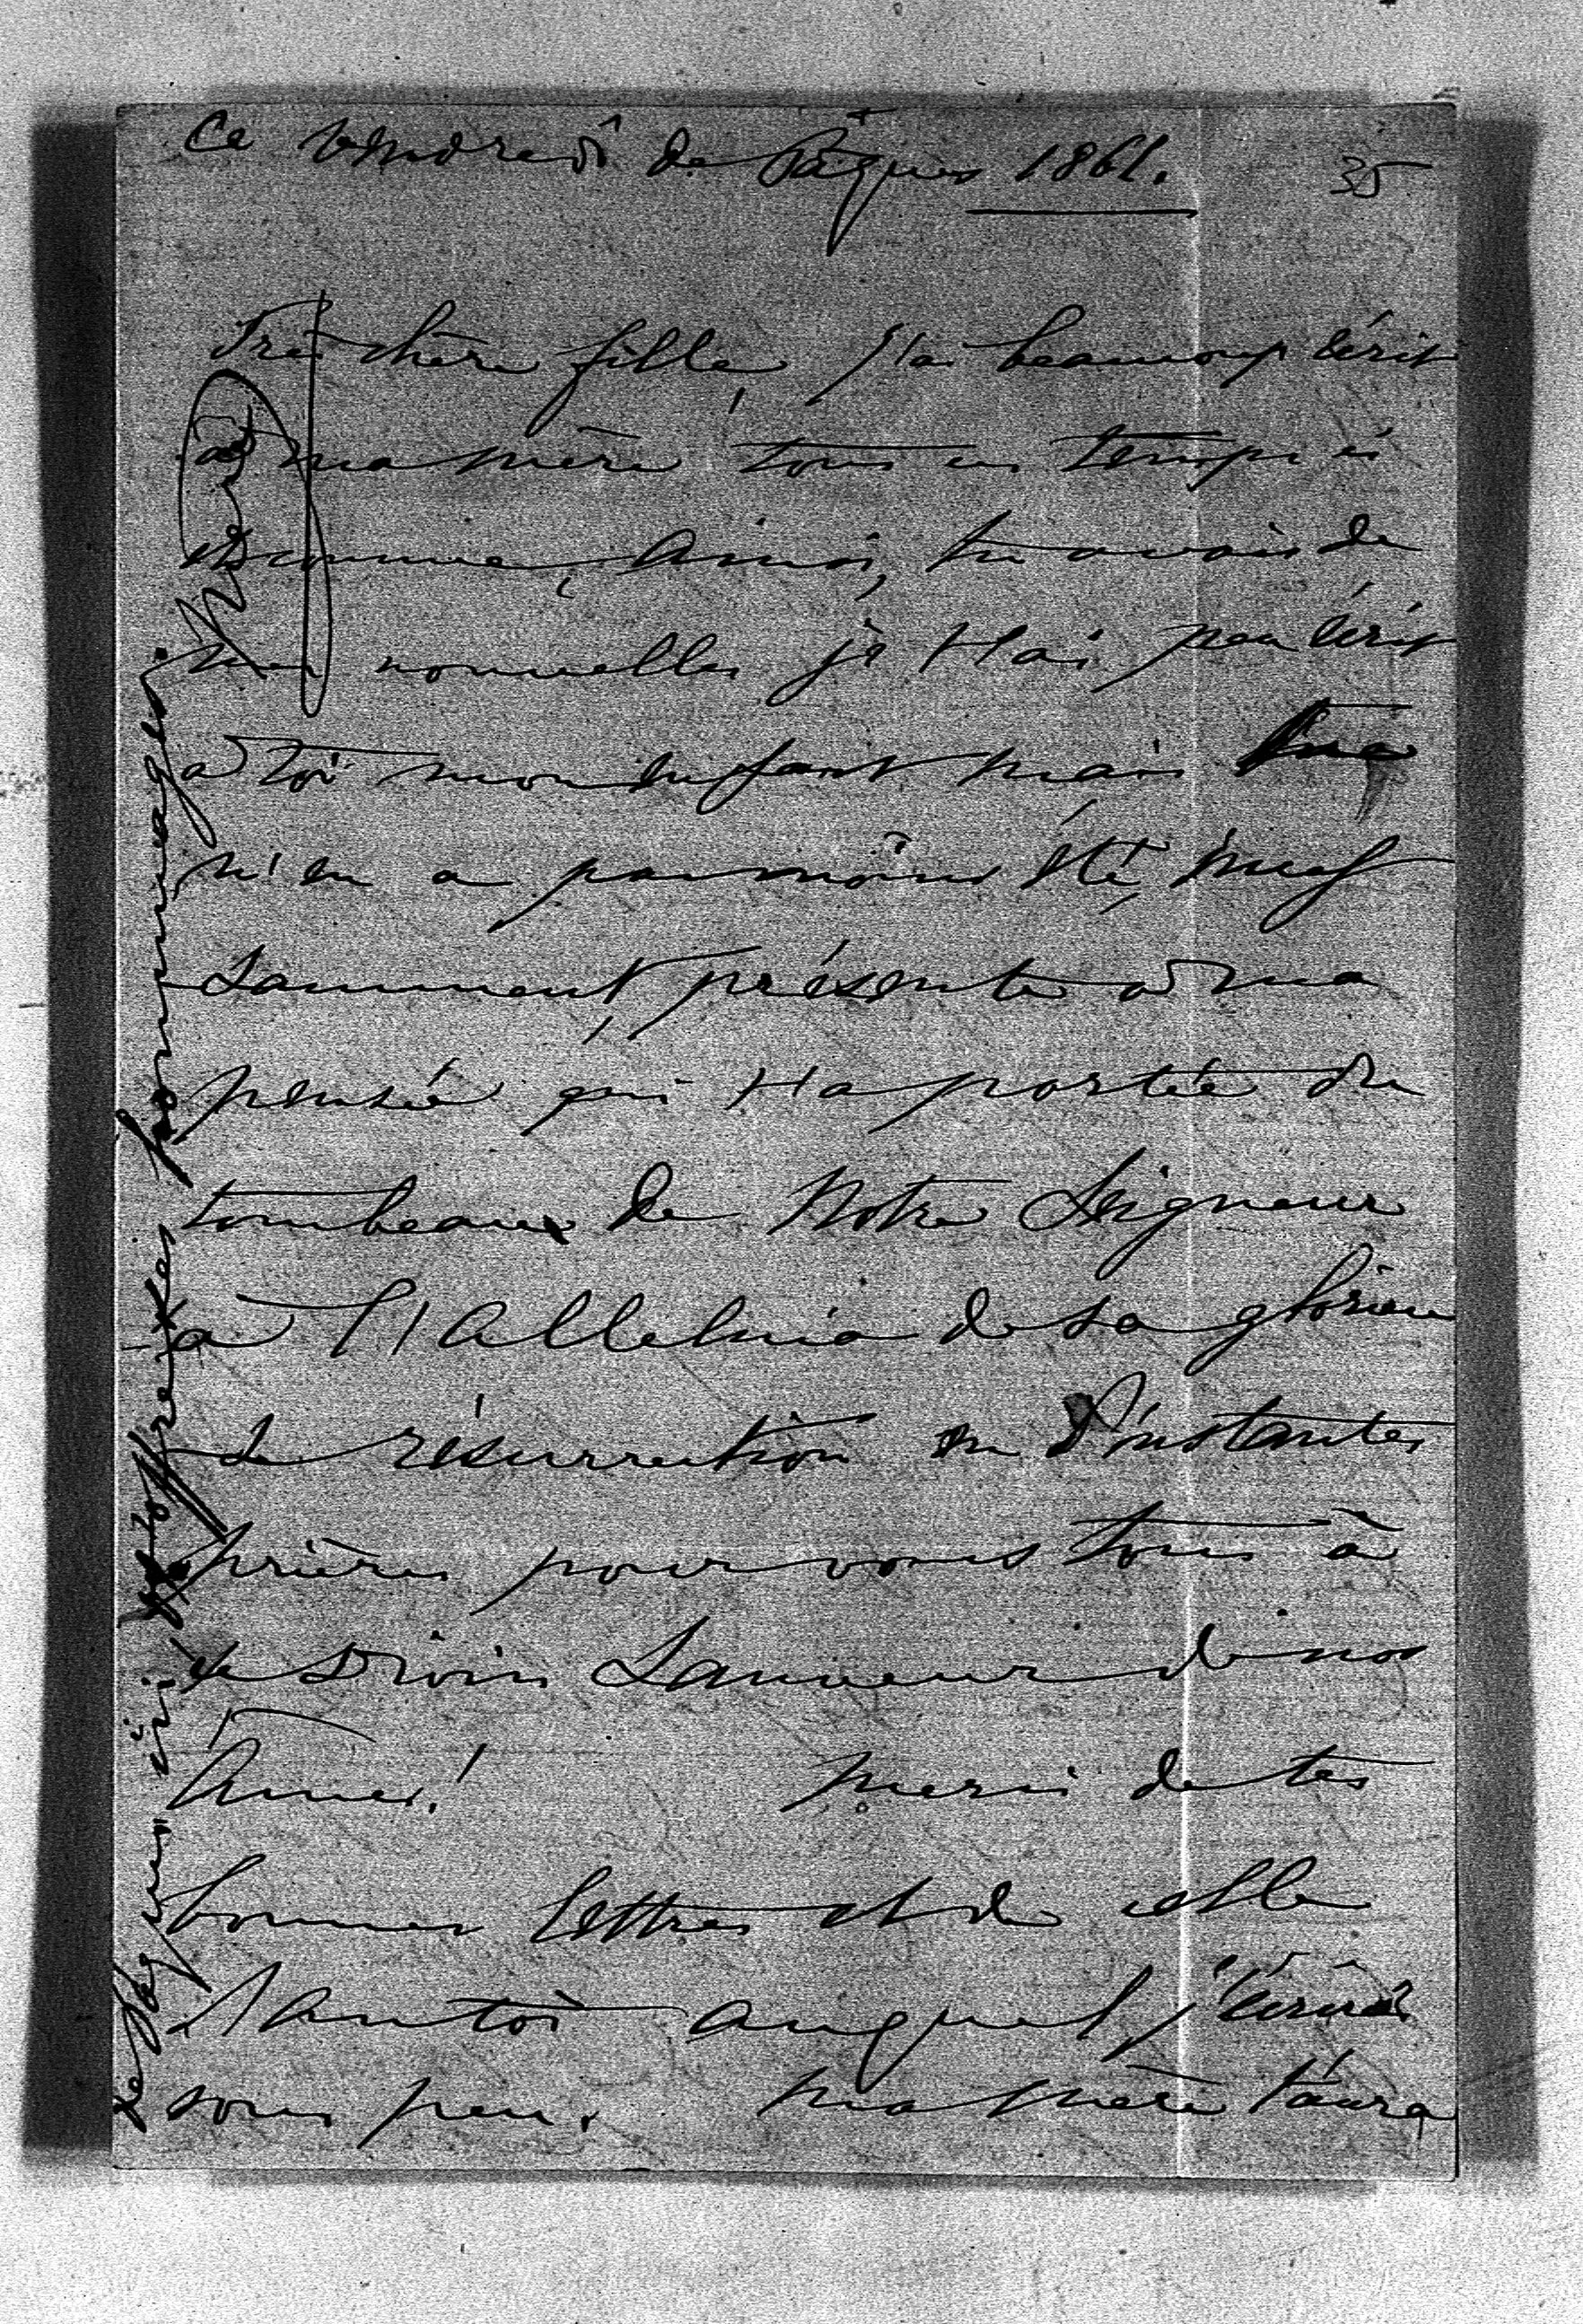 Ce vendredi de Pâques 1861.
35
Très chère fille, j'ai beaucoup écrit
à ma mère tous ces temps ci
et comme, ainsi, tu avais de
mes nouvelles je t'ai peu écrit
à toi mon enfant mais tu
n'en a pas moins été, inces
samment, présente à ma
pensée qui t'a portée du
tombeau de Notre Seigneur
à l'Alleluia de sa glorieu
se résurrection en d'instantes
prières pour vous tous à
ce Divin Sauveur de nos
âmes! Merci de tes
bonnes lettres et de celle
d'Antoi auquel j'écrirai
sous peu. Ma mère t'aura
hommages.